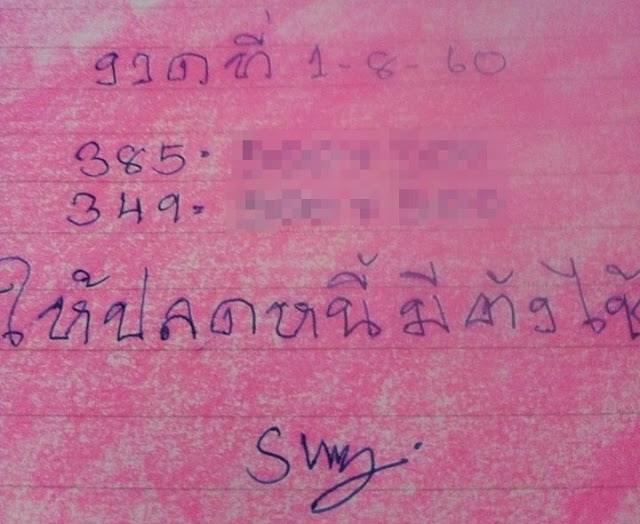 งวดที่ 1-8-60
385.
349.
ให้ปลดหนี้มีตังไช้